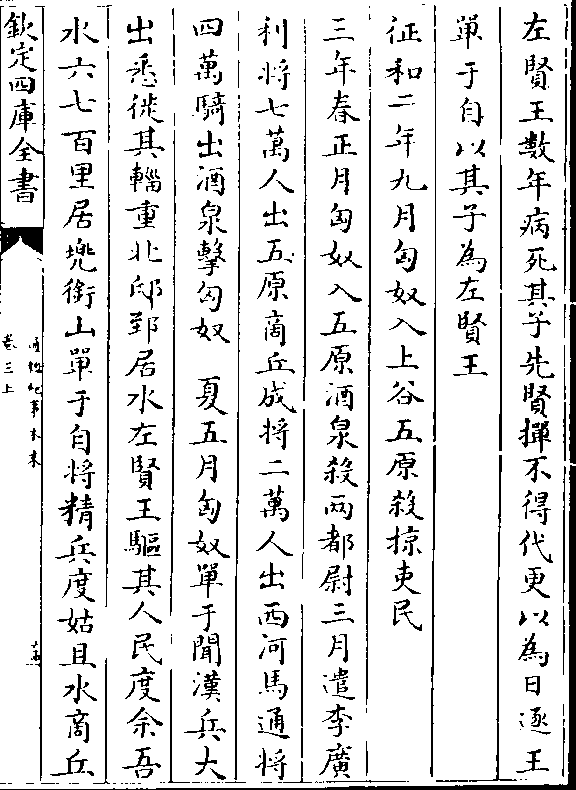 左賢王數年病死其子先賢撣不得代更以為日逐王
單于自以其子為左賢王
征和二年九月匈奴入上谷五原殺掠吏民
三年春正月匈奴入五原酒泉殺兩都尉三月遣李廣
利將七萬人出五原商丘成將二萬人出西河馬通將
四萬騎出酒泉擊匈奴　夏五月匈奴單于聞漢兵大
出悉徙其輜重北邸郅居水左賢王驅其人民度余吾
水六七百里居兠銜山單于自將精兵度姑且水商丘
欽定四庫全書
通鑑紀事本末
卷三上